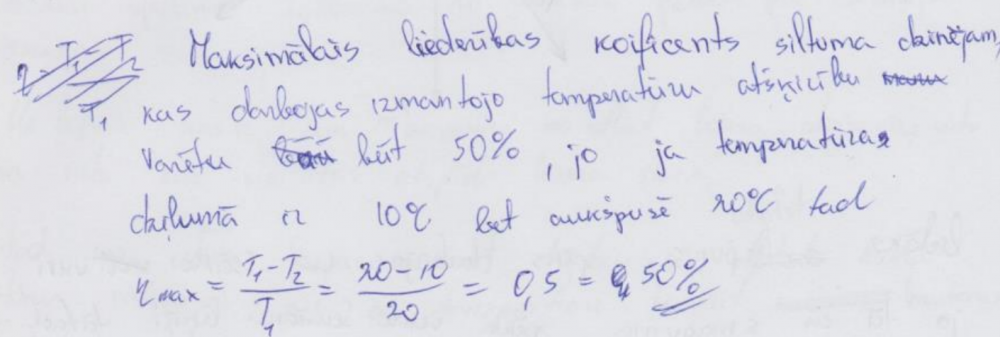 Maksimālais liederības koificents siltuma dzinējam,
kas darbojas izmantojo tamperatūru atšķicību
Varētu būt 50%, jo ja tempratūras
dziļumā ir 10°C bet aukšpusē 20°C tad
η max = T₁-T₂ / T₁ = 20-10 / 20 = 0,5 = 50%